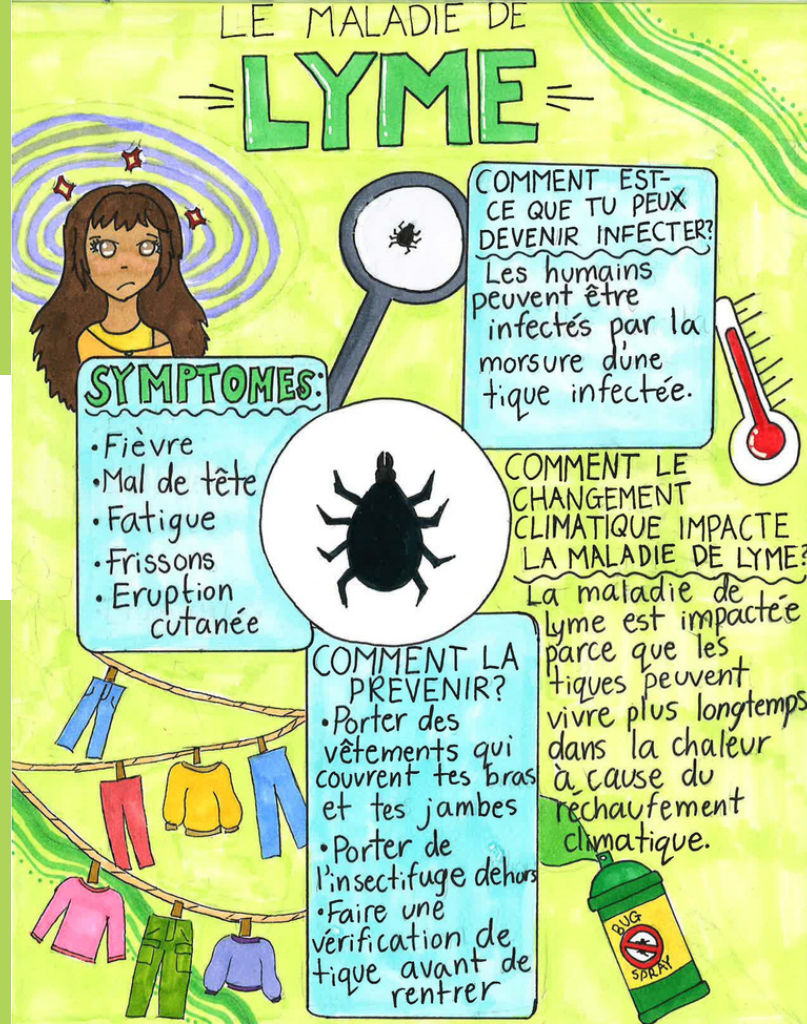 LE MALADIE DE
LYME
COMMENT EST-
CE QUE TU PEUX
DEVENIR INFECTER?
Les humains
peuvent être
infectés par la
morsure d'une
tique infectée.
SYMPTOMES:
• Fièvre
• Mal de tête
• Fatigue
• Frissons
• Eruption
cutanée
COMMENT LE
CHANGEMENT
CLIMATIQUE IMPACTE
LA MALADIE DE LYME?
La maladie de
lyme est impactée
parce que les
tiques peuvent
vivre plus longtemps
dans la chaleur
à cause du
réchaufement
climatique.
COMMENT LA
PREVENIR?
• Porter des
vêtements qui
couvrent tes bras
et tes jambes
• Porter de
l'insectifuge dehors
• Faire une
vérification de
tique avant de
rentrer
BUG
SPRAY